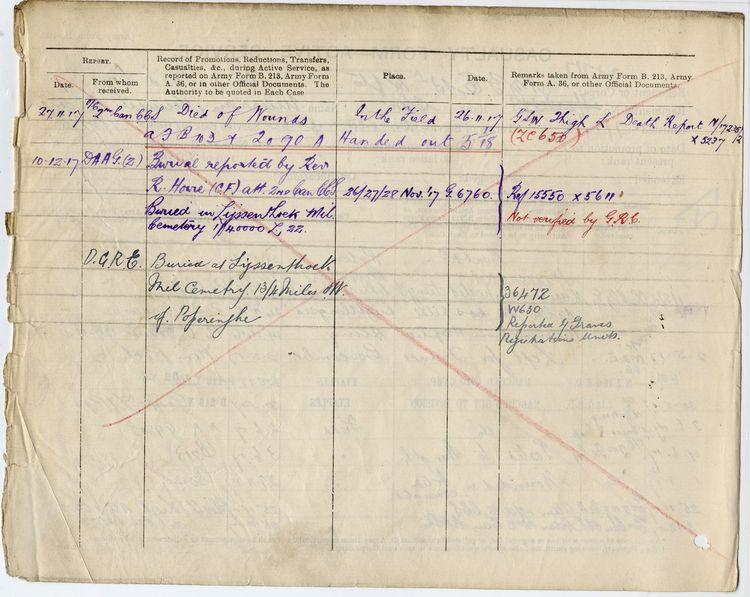 REPORT.
Record of Promotions, Reductions, Transfers,
Casualties, &c., during Active Service, as
reported on Army Form B. 213, Army Form
A. 36, or in other Official Documents. The
Authority to be quoted in Each Case
Place.
Date.
Remarks taken from Army Form B. 213, Army
Form A. 36, or other Official Documents.
Date.
From whom
received.
27.11.17 2nd Can CCS Died of Wounds In the Field 26.11.17 GSW Thigh L Death Report
(ZC650) x 5237
B 103 + 2090 A Handed out
10.12.17 DAAG. (2) Burial reported by Rev
R. (CF) att 2nd Can CCS 26/27/28 Nov. '17 G. 6760. Ref 15550 x 5611
Buried in Lyssenthoek Mil. Not verified by G.R.C.
Cemetery 1/40000 L, 22.
D.G.R.E. Buried at Lyssenthoek
Mil Cemetry. 1 3/4 Miles 36472
of Poperinghe W630
Reported by Graves
Registrations Units.